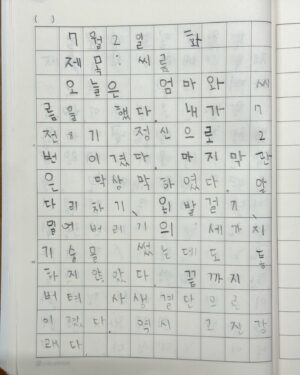 ( )
7월 2일 화
제목: 씨름
오늘은 엄마와 씨
름을 했다. 내가 7
전 8기 정신으로 2
번 이겼다. 마지막 판
은 막상막하였다. 안
다리 차기, 외발 걸기,
밀어버리기의 세가지
기술을 썼는데도 통
하지 않았다. 끝까지
버텨 사생결단으로
이겼다. 역시 2진강
래다